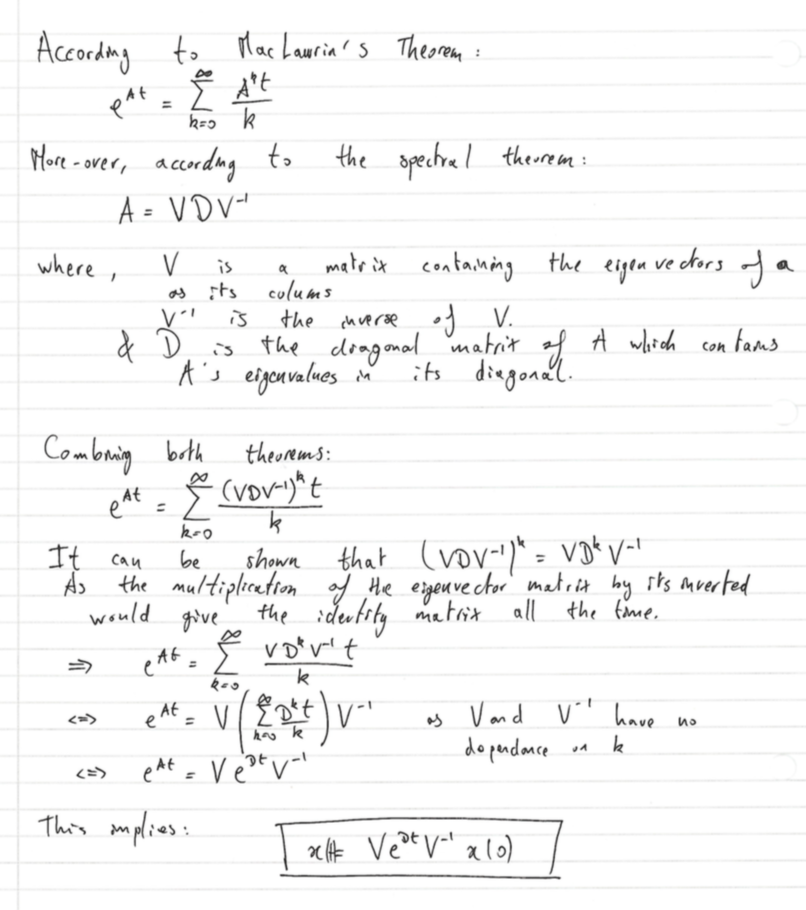 According to MacLaurin's Theorem:
e^{At} = \sum_{k=0}^{\infty} \frac{A^k t}{k}
More-over, according to the spectral theorem:
A = VDV^{-1}
where, V is a matrix containing the eigenvectors of a
as its colums
V^{-1} is the inverse of V.
& D is the diagonal matrix of A which contains
A's eigenvalues in its diagonal.
Combining both theorems:
e^{At} = \sum_{k=0}^{\infty} \frac{(VDV^{-1})^k t}{k}
It can be shown that (VDV^{-1})^k = VD^k V^{-1}
As the multiplication of the eigenvector matrix by its inverted
would give the identity matrix all the time.
⇒ e^{At} = \sum_{k=0}^{\infty} \frac{VD^k V^{-1} t}{k}
<=> e^{At} = V \left( \sum_{k=0}^{\infty} \frac{D^k t}{k} \right) V^{-1} as V and V^{-1} have no
dependance on k
<=> e^{At} = V e^{Dt} V^{-1}
This implies: x(t) = Ve^{Dt} V^{-1} x(0)